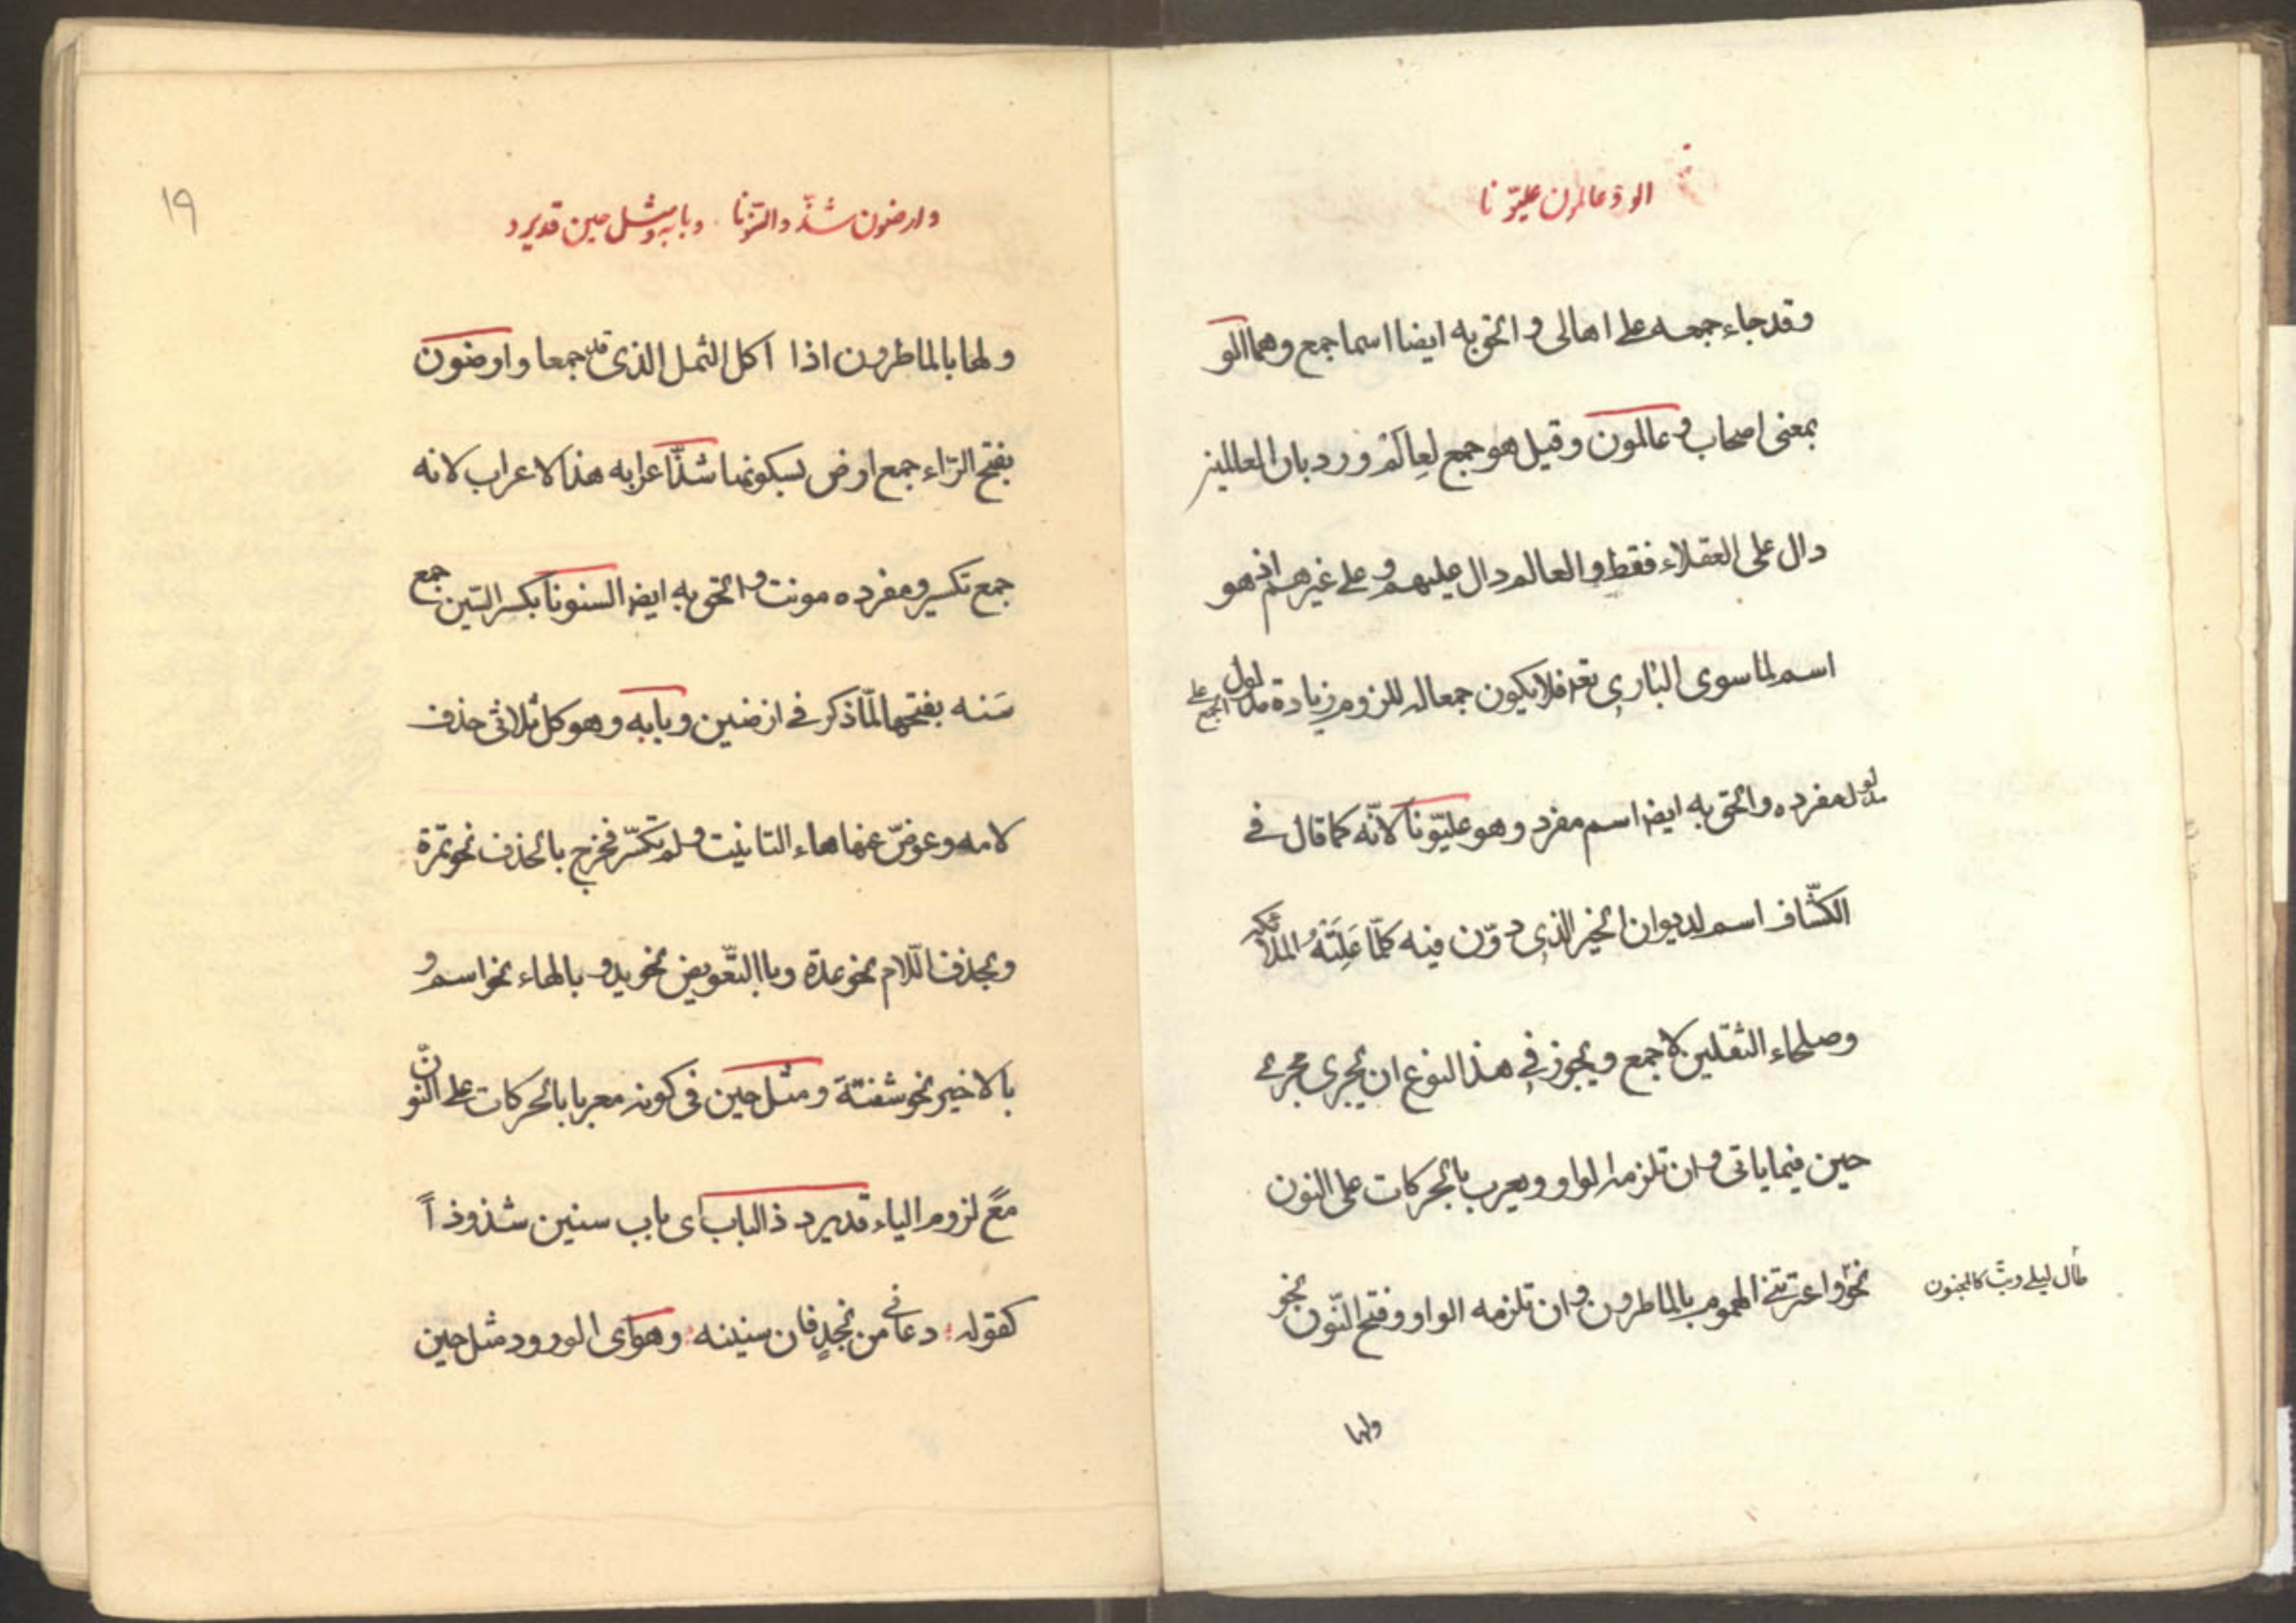 الو وعالمون عليونا
وقد جاء جمعه على اهالى و الحق به ايضا اسما جمع وهما الو
بمعنى اصحاب و عالمون وقيل هو جمع لعالم ورد بان العالمين
دال على العقلاء فقط والعالم دال عليهم و على غيرهم اذ هو
اسم لما سوى البارى تعه فلا يكون جمعا له للزوم زيادة مدلول الجمع على
مدلول مفرده والحق به ايضا اسم مفرد وهو عليونا لانّه كما قال فى
الكشّاف اسم لديوان الخير الذى دوّن فيه كلّما عَلِمَتْهُ الملائكه
وصلحاء الثقلين لا جمع ويجوز فى هذا النوع ان يجرى مجرى
حين فيما ياتى و ان تلزمه الواو ويعرب بالحركات على النون
نحو واعترتنى الهموم بالماطرون و ان تلزمه الواو وفتح النّون نحو
طال ليلى وبتّ كالمجنون
ولها
١٩
وارضون شذّ والسّنونا وبابه ومثل حين قد يرد
ولها بالماطرون اذا اكل النمل الذى جمعا وارضون
بفتح الرّاء جمع ارض بسكونها شذّ اعرابه هذا الاعراب لانه
جمع تكسير و مفرده مونث و الحق به ايضا السنونا بكسر السّين جمع
سَنه بفتحها لمّا ذكر فى ارضين وبابه وهو كل ثلاثى حذف
لامه وعوضّ عنها هاء التانيث ولم تكسّر فخرج بالحذف نحو تمرة
وبحذف اللّام نحو عدة وبالتّعويض نحو يد و بالهاء نحو اسم و
بالاخير نحو شفتة ومثل حين فى كونه معربا بالحركات على النون
مَعَ لزوم الياء قد يرد ذا الباب اى باب سنين شذوذاً
كقوله دعانى من نجدٍ فان سنينه وهو اى الورود مثل حين